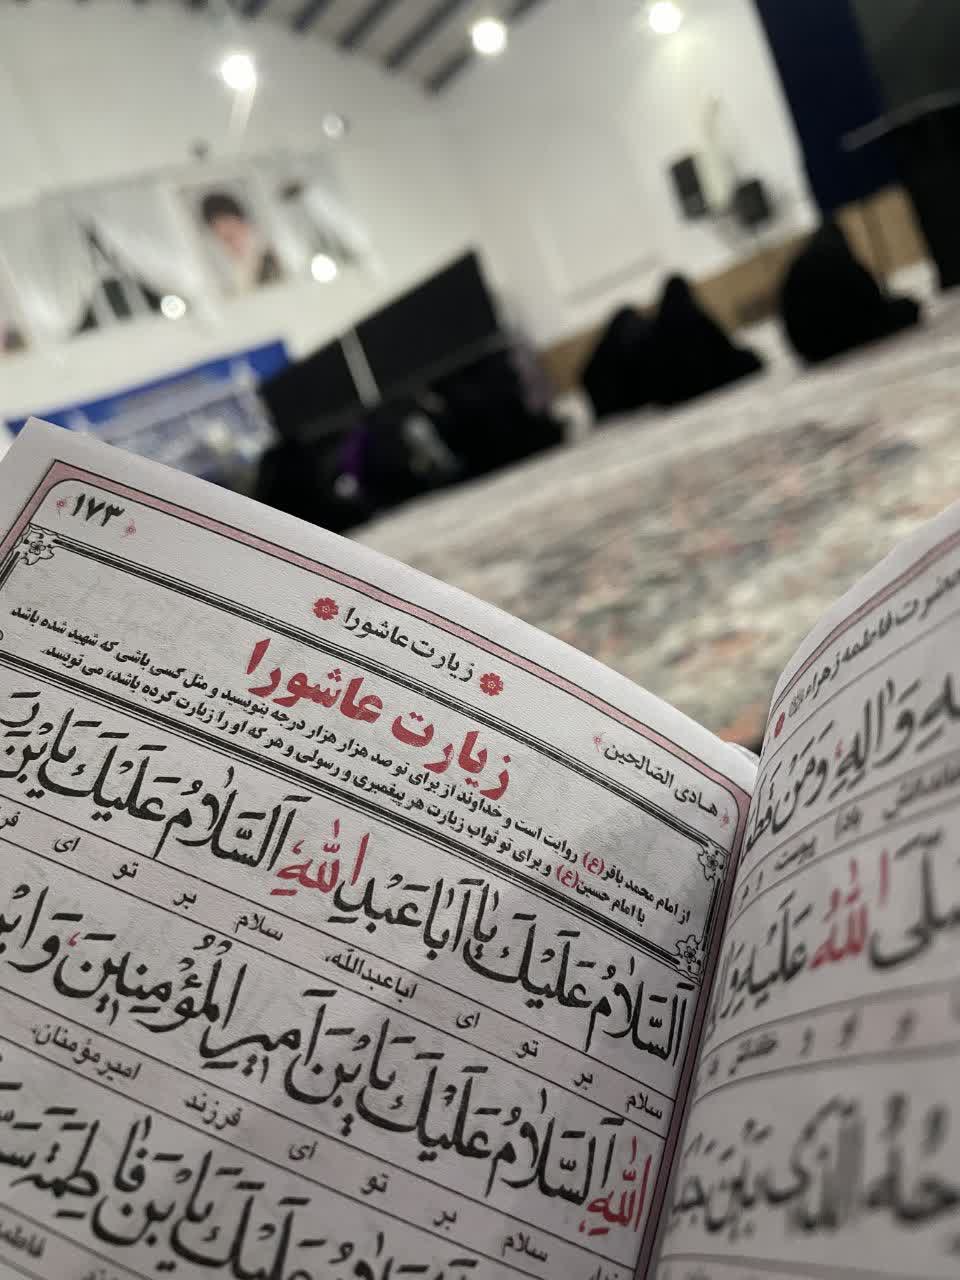 ﴿۱۷۳﴾
زیارت عاشورا
﴿هادی الصّالحین﴾
زیارت عاشورا
از امام محمد باقر(ع) روایت است و خداوند از برای تو صد هزار هزار درجه بنویسید و مثل کسی باشی که شهید شده باشد
با امام حسین(ع) و برای تو ثواب زیارت هر پیغمبری و رسولی و هر که او را زیارت کرده باشد، می‌نویسد.
اَلسَّلامُ عَلَیْكَ یا اَباعَبْدِ اللهِ، اَلسَّلامُ عَلَیْكَ یَابْنَ
سلام بر تو ای اباعبدالله، سلام بر تو ای
اللهِ، اَلسَّلامُ عَلَیْكَ یَابْنَ اَمیرِ الْمُؤْمِنینَ، وَابْنَ
سلام بر تو ای فرزند امیرمؤمنان،
اَلسَّلامُ عَلَیْكَ یَابْنَ فاطِمَةَ
حضرت فاطمه زهراء
وَالِهِ، وَمَنْ
صَلَّی اللهُ عَلَیْهِ وَ
الَّذی بَیْنَ